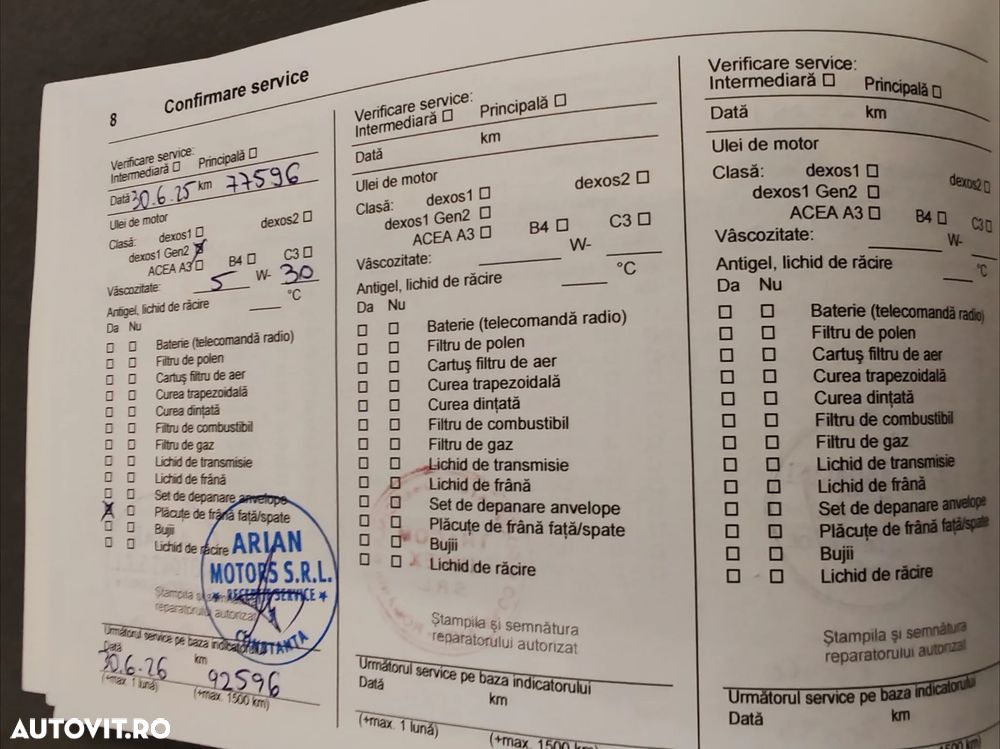 8 Confirmare service
Verificare service:
Intermediară ☐ Principală ☐
Dată 30.6.25 km 77596
Ulei de motor
Clasă: dexos1 ☐ dexos2 ☐
dexos1 Gen2 ☒
ACEA A3 ☐ B4 ☐ C3 ☐
Vâscozitate: 5 W- 30
Antigel, lichid de răcire ____ °C
Da Nu
☐ ☐ Baterie (telecomandă radio)
☐ ☐ Filtru de polen
☐ ☐ Cartuş filtru de aer
☐ ☐ Curea trapezoidală
☐ ☐ Curea dinţată
☐ ☐ Filtru de combustibil
☐ ☐ Filtru de gaz
☐ ☐ Lichid de transmisie
☐ ☐ Lichid de frână
☐ ☐ Set de depanare anvelope
☒ ☐ Plăcuţe de frână faţă/spate
☐ ☐ Bujii
☐ ☐ Lichid de răcire
ARIAN
MOTORS S.R.L.
SERVICE
CONSTANTA
Ştampila şi
reparatorului autorizat
Următorul service pe baza indicatorului
Dată km
30.6.26 92596
(+max. 1 lună) (+max. 1500 km)
Verificare service:
Intermediară ☐ Principală ☐
Dată km
Ulei de motor
Clasă: dexos1 ☐ dexos2 ☐
dexos1 Gen2 ☐
ACEA A3 ☐ B4 ☐ C3 ☐
Vâscozitate: ____ W- ____
Antigel, lichid de răcire ____ °C
Da Nu
☐ ☐ Baterie (telecomandă radio)
☐ ☐ Filtru de polen
☐ ☐ Cartuş filtru de aer
☐ ☐ Curea trapezoidală
☐ ☐ Curea dinţată
☐ ☐ Filtru de combustibil
☐ ☐ Filtru de gaz
☐ ☐ Lichid de transmisie
☐ ☐ Lichid de frână
☐ ☐ Set de depanare anvelope
☐ ☐ Plăcuţe de frână faţă/spate
☐ ☐ Bujii
☐ ☐ Lichid de răcire
Ştampila şi semnătura
reparatorului autorizat
Următorul service pe baza indicatorului
Dată km
(+max. 1 lună) (+max. 1500 km)
Verificare service:
Intermediară ☐ Principală ☐
Dată km
Ulei de motor
Clasă: dexos1 ☐ dexos2 ☐
dexos1 Gen2 ☐
ACEA A3 ☐ B4 ☐ C3 ☐
Vâscozitate: ____ W- ____
Antigel, lichid de răcire ____ °C
Da Nu
☐ ☐ Baterie (telecomandă radio)
☐ ☐ Filtru de polen
☐ ☐ Cartuş filtru de aer
☐ ☐ Curea trapezoidală
☐ ☐ Curea dinţată
☐ ☐ Filtru de combustibil
☐ ☐ Filtru de gaz
☐ ☐ Lichid de transmisie
☐ ☐ Lichid de frână
☐ ☐ Set de depanare anvelope
☐ ☐ Plăcuţe de frână faţă/spate
☐ ☐ Bujii
☐ ☐ Lichid de răcire
Ştampila şi semnătura
reparatorului autorizat
Următorul service pe baza indicatorului
Dată km
1500 km)
AUTOVIT.RO